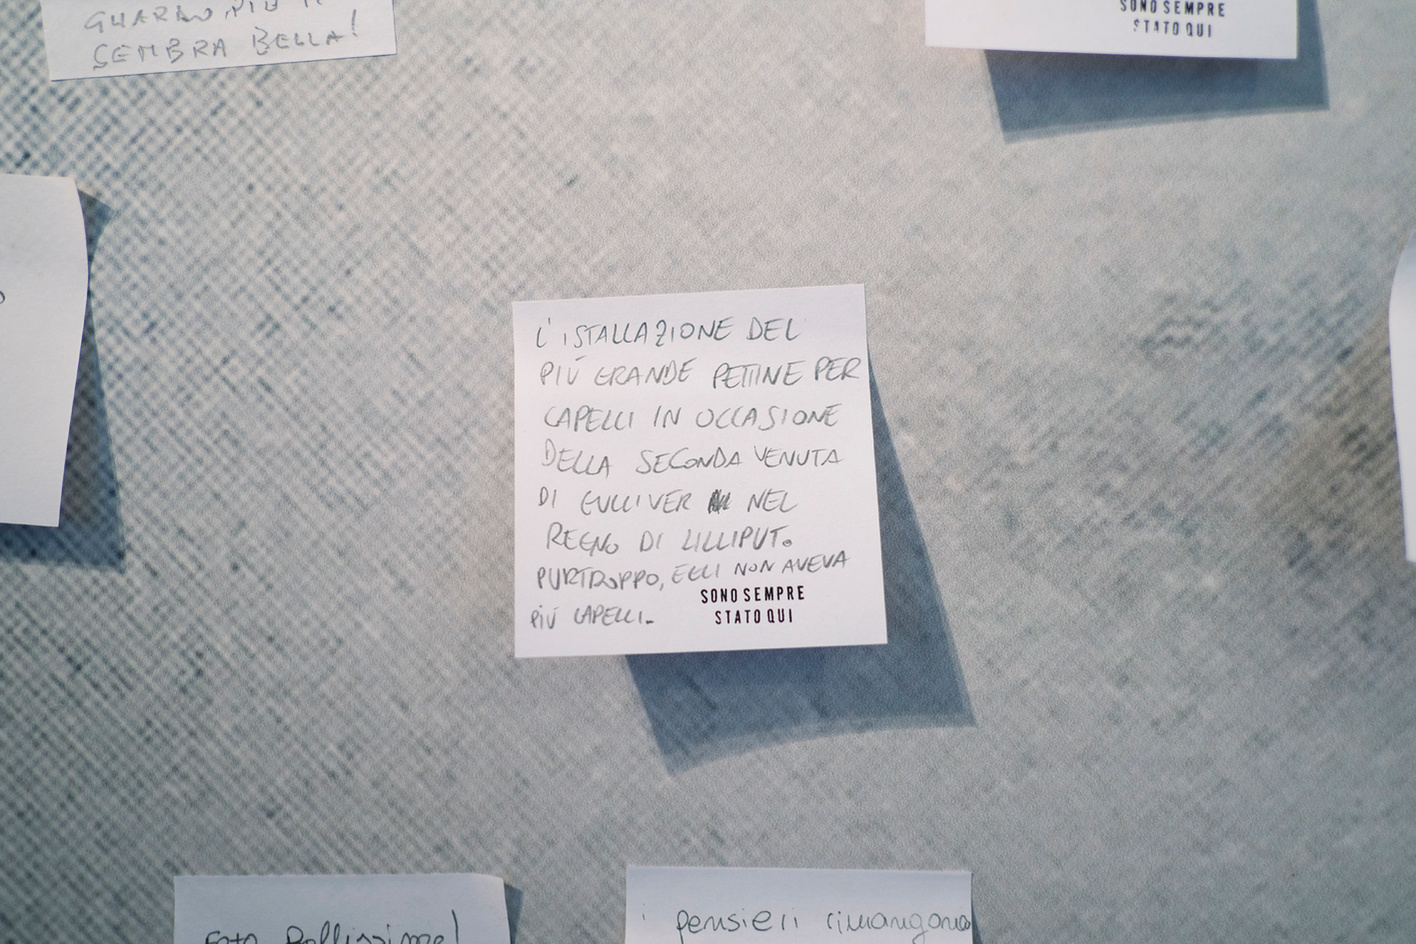 GUARDO PIÙ
SEMBRA BELLA!
SONO SEMPRE
STATO QUI
L'ISTALLAZIONE DEL
PIÙ GRANDE PETTINE PER
CAPELLI IN OCCASIONE
DELLA SECONDA VENUTA
DI GULLIVER NEL
REGNO DI LILLIPUT.
PURTROPPO, EGLI NON AVEVA
PIÙ CAPELLI.
SONO SEMPRE
STATO QUI
Foto Bellissime!
i pensieri rimangono